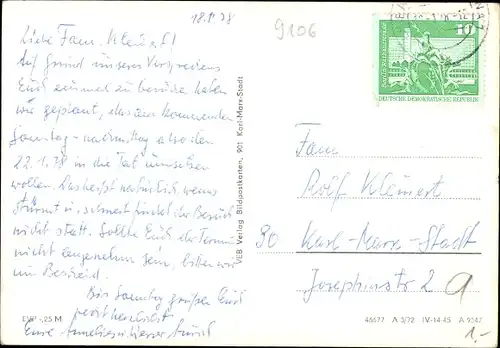 18.1.78
9106
Liebe Fam. Kleinert!
Auf Grund unseres Versprechens
Euch einmal zu besuchen haben
wir geplant, das am kommenden
Sonntag-nachmittag also den
22.1.78 in die Tat umsetzen
wollen. Das heißt natürlich, wenns
stürmt u. schneit findet der Besuch
nicht statt. Sollte Euch der Termin
nicht angenehm sein, bitten wir
um Bescheid.
Bis Sonntag grüßen Euch
recht herzlichst
Eure
EVP -,25 M
VEB Verlag Bildpostkarten, 901 Karl-Marx-Stadt
10
DEUTSCHE DEMOKRATISCHE REPUBLIK
Fam
Rolf Kleinert
90 Karl-Marx-Stadt
Josephinstr 2
a
46677 A 3/72 IV-14-45 A 9347
1,-